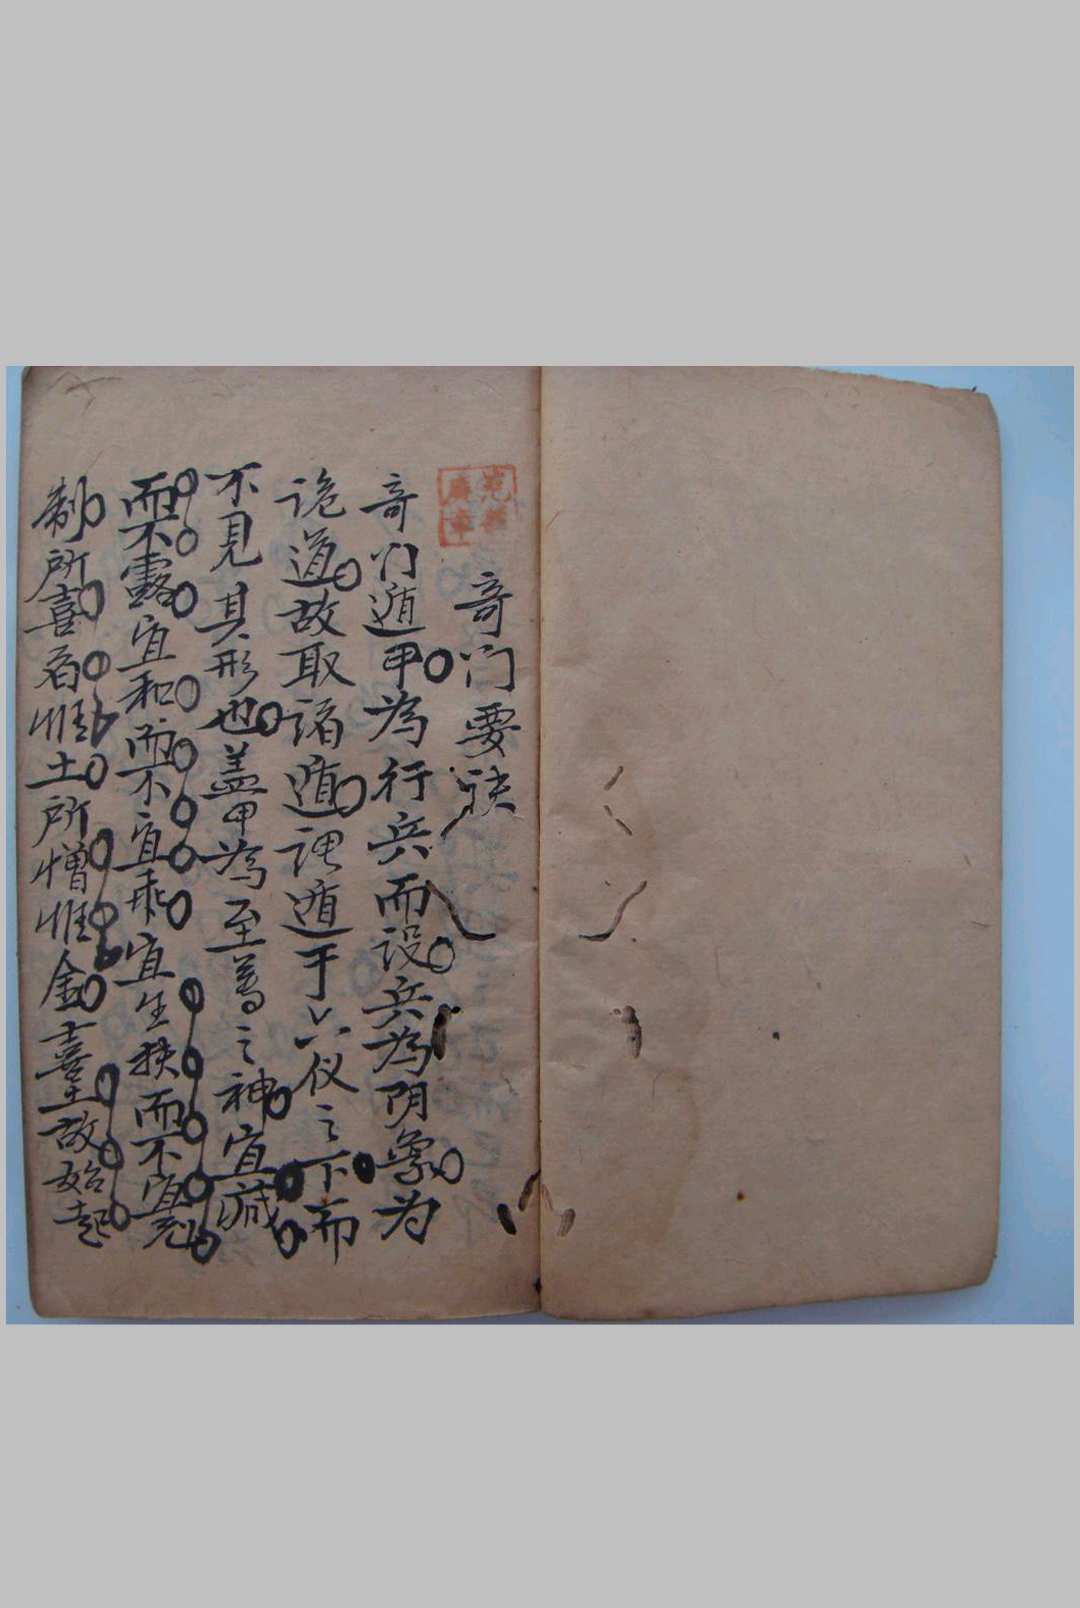 奇门要诀
奇门遁甲为行兵而设兵为阴象为
诡道故取诸遁谓遁于六仪之下而
不见其形也盖甲为至尊之神宜藏
而不露宜和而不宜乖宜生扶而不宜克
制所喜者惟土所憎惟金土故始起